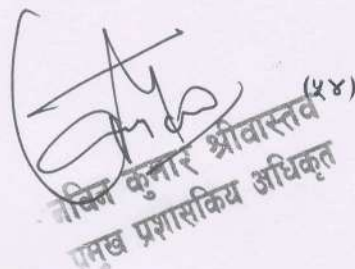 (५४)
नविन कुमार श्रीवास्तव
प्रमुख प्रशासकिय अधिकृत